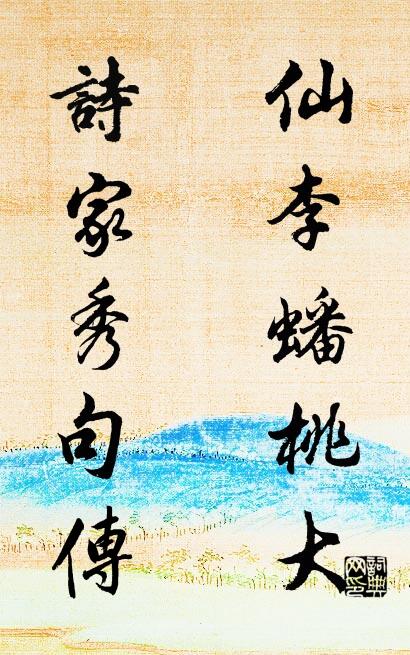 仙李蟠桃大
詩家秀句傳
詞典網印